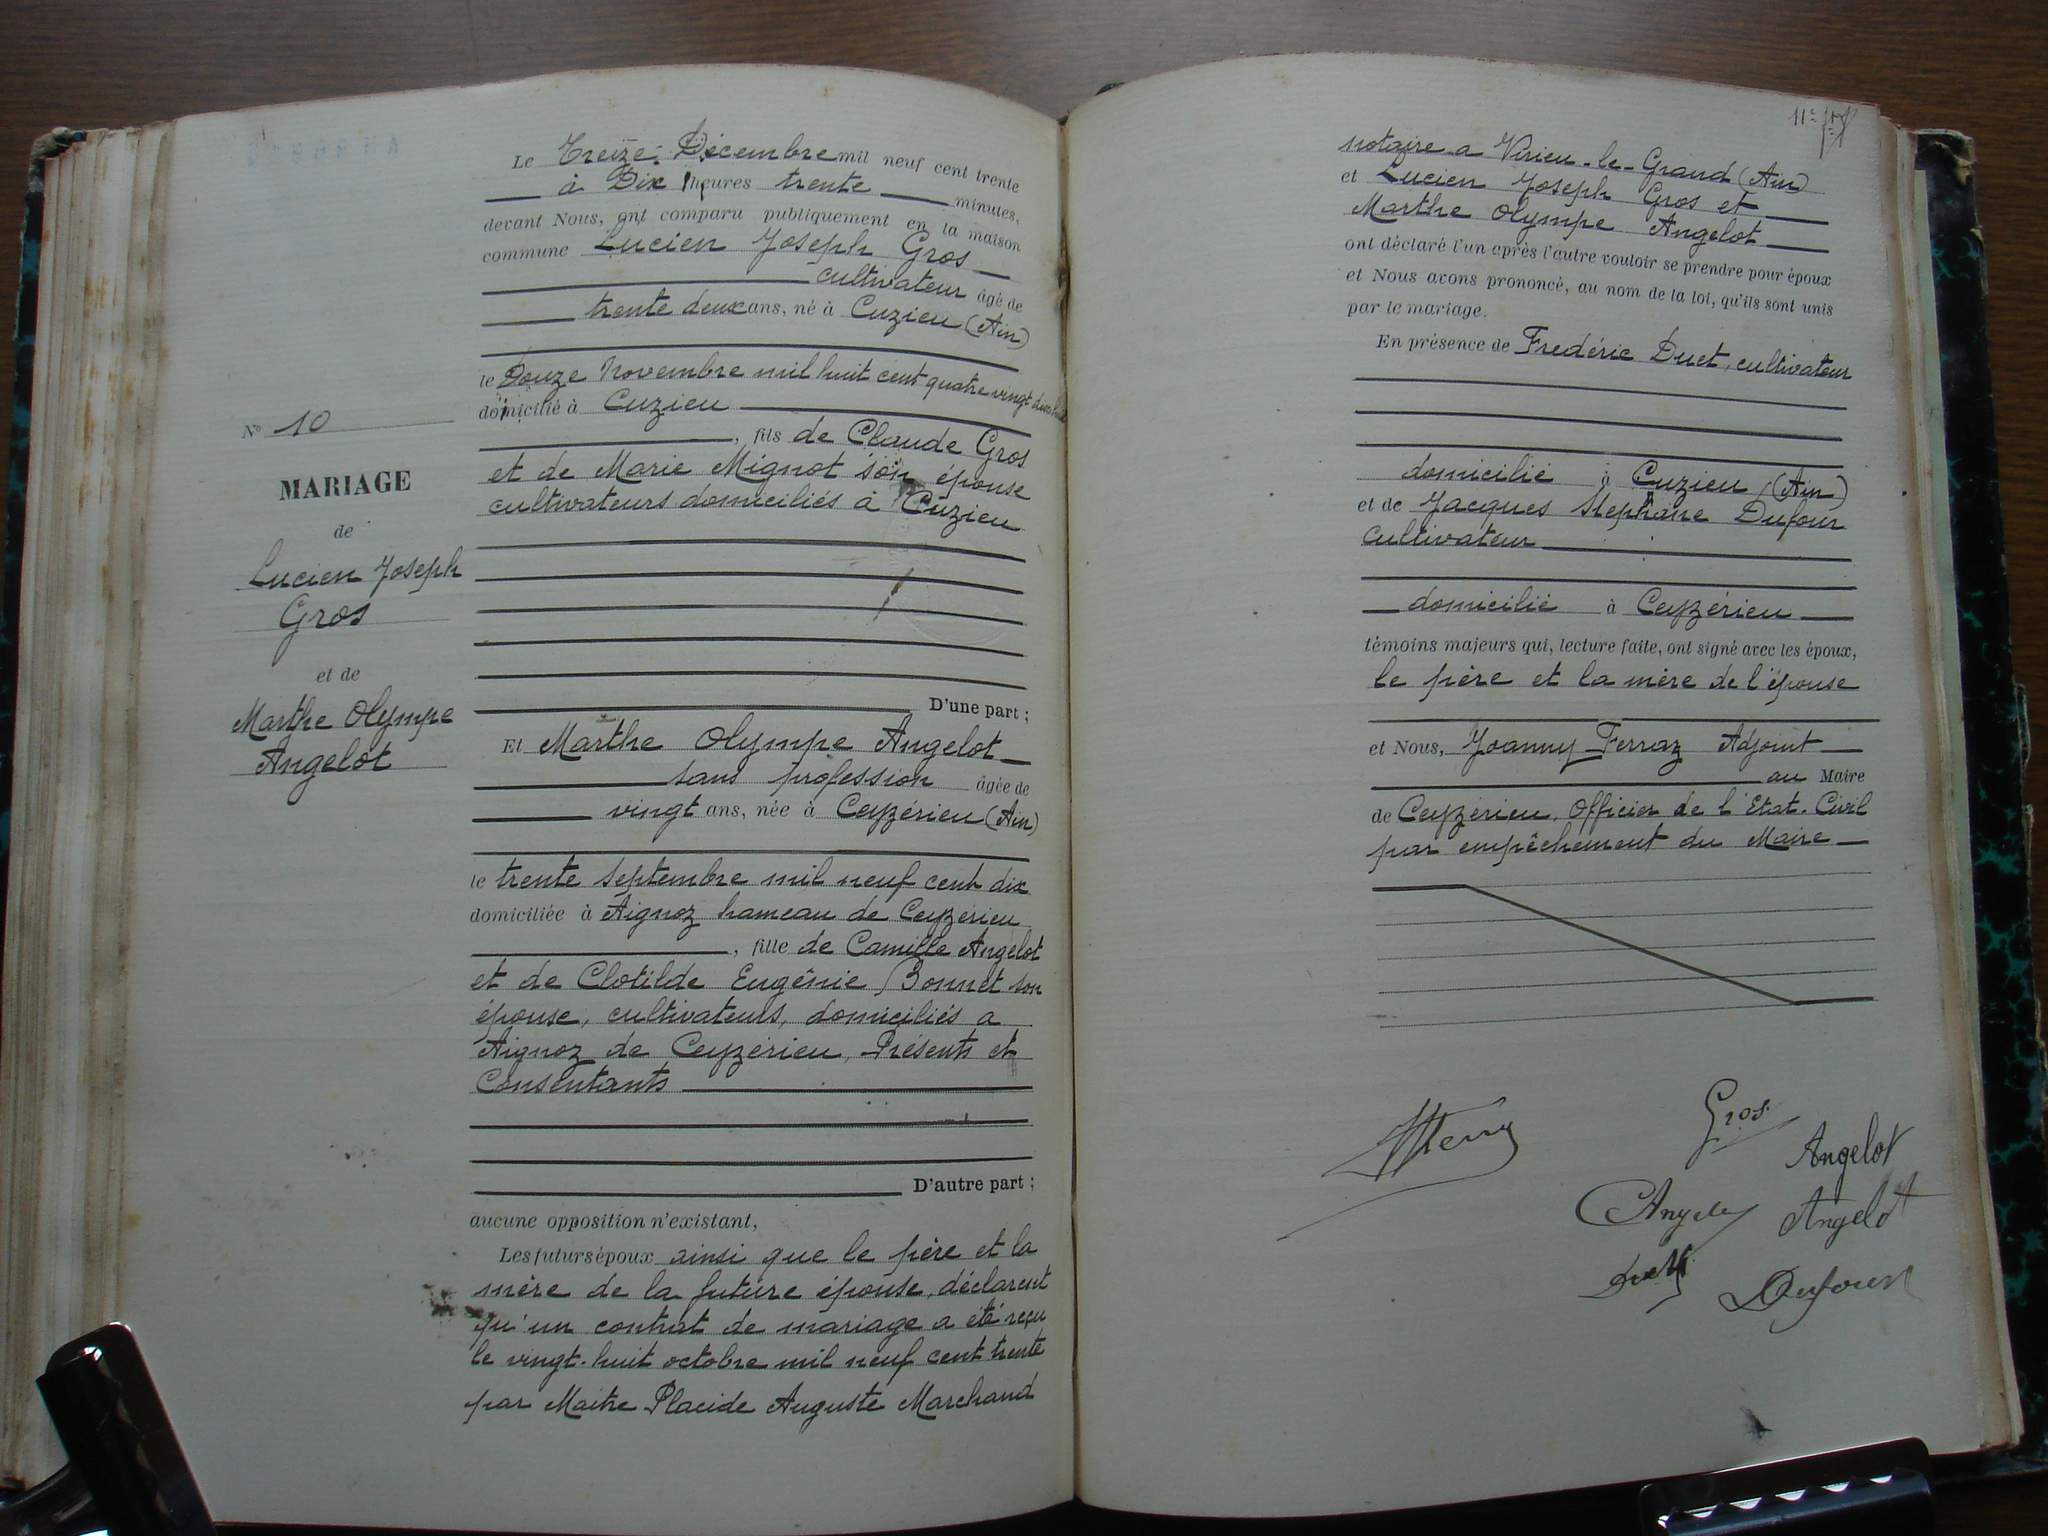 N° 10
MARIAGE
de
Lucien Joseph
Gros
et de
Marthe Olympe
Angelot
Le Treize Décembre mil neuf cent trente
à Dix heures trente minutes,
devant Nous, ont comparu publiquement en la maison
commune Lucien Joseph Gros
cultivateur âgé de
trente deux ans, né à Cuzieu (Ain)
le Douze Novembre mil huit cent quatre vingt dix huit
domicilié à Cuzieu
, fils de Claude Gros
et de Marie Mignot son épouse
cultivateurs domiciliés à Cuzieu
D'une part ;
Et Marthe Olympe Angelot
sans profession âgée de
vingt ans, née à Ceyzérieu (Ain)
le trente septembre mil neuf cent dix
domiciliée à Aignoz hameau de Ceyzérieu
, fille de Camille Angelot
et de Clotilde Eugênie Bonnet son
épouse, cultivateurs, domiciliés a
Aignoz de Ceyzérieu, Présents et
Consentants
D'autre part ;
aucune opposition n'existant,
Les futurs époux ainsi que le père et la
mère de la future épouse, déclarent
qu'un contrat de mariage a été reçu
le vingt-huit octobre mil neuf cent trente
par Maitre Placide Auguste Marchand
notaire a Virieu-le-Grand (Ain)
et Lucien Joseph Gros et
Marthe Olympe Angelot
ont déclaré l'un après l'autre vouloir se prendre pour époux
et Nous avons prononcé, au nom de la loi, qu'ils sont unis
par le mariage.
En présence de Frédéric Duet, cultivateur
domicilié à Cuzieu (Ain)
et de Jacques Stephane Dufour
cultivateur
domicilié à Ceyzérieu
témoins majeurs qui, lecture faite, ont signé avec les époux,
le père et la mère de l'épouse
et Nous, Joanny Ferraz Adjoint
au Maire
de Ceyzérieu, Officier de l'Etat-Civil
par empêchement du Maire
Gros
Angelot
Angelot
Dufour